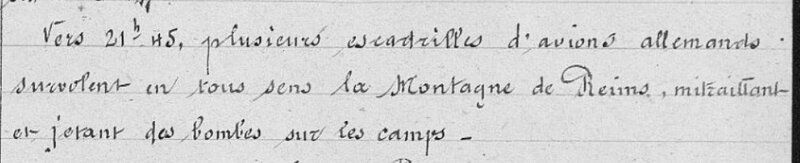 Vers 21h 45, plusieurs escadrilles d'avions allemands
survolent en tous sens la Montagne de Reims, mitraillant
et jetant des bombes sur les camps -